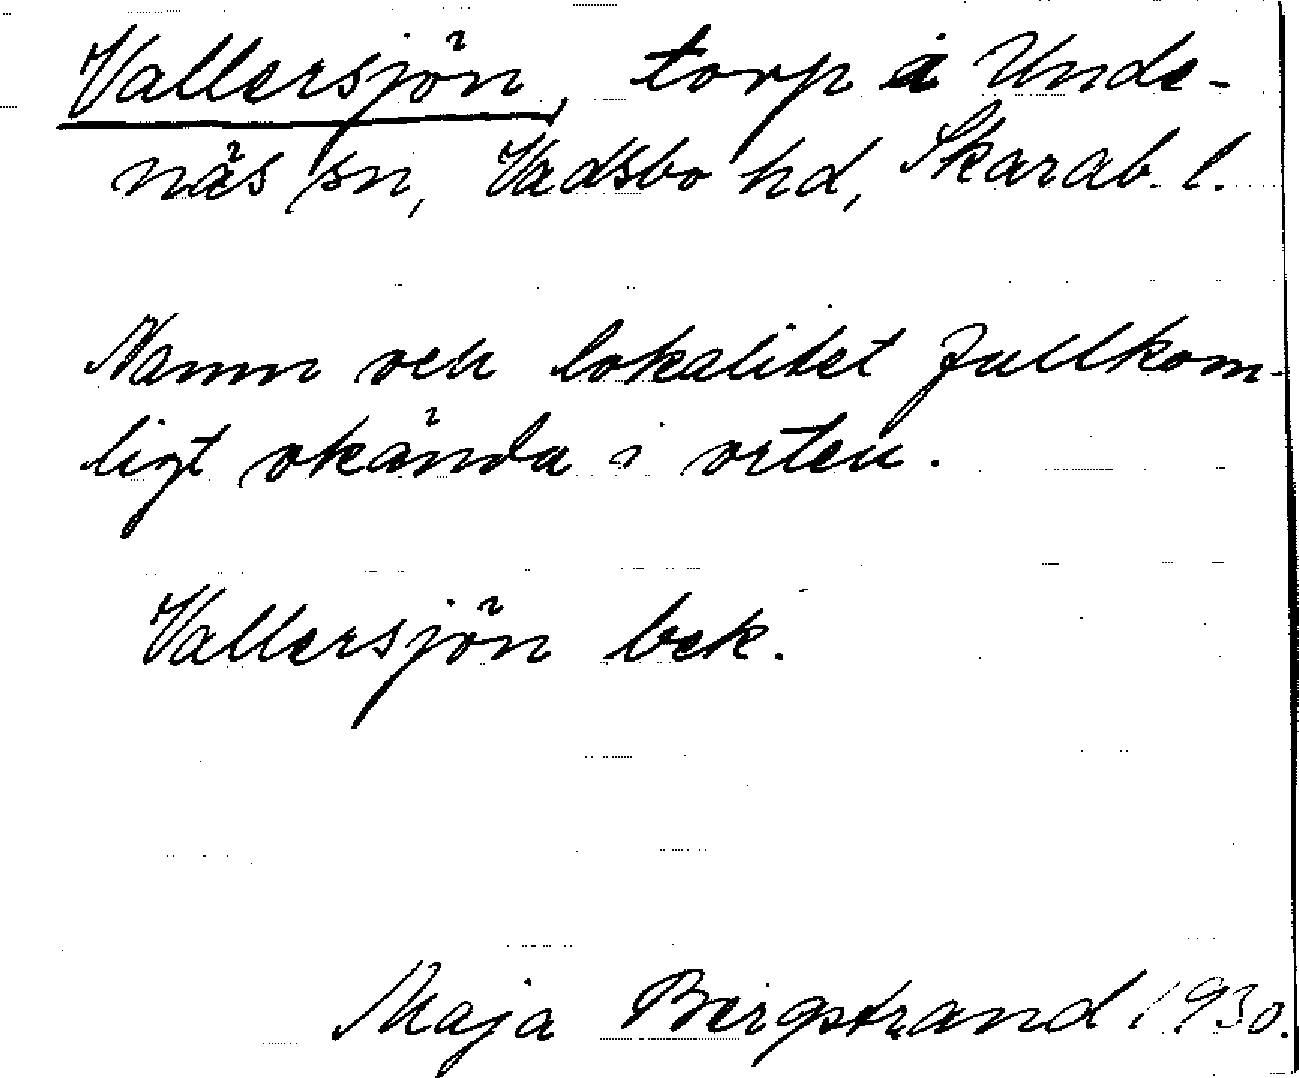 Vallersjön, torp i Unde-
näs sn, Vadsbo hd, Skarab. l.
Namn och lokalitet fullkom-
ligt okända i orten.
Vallersjön bek.
Maja Bergstrand 1930.